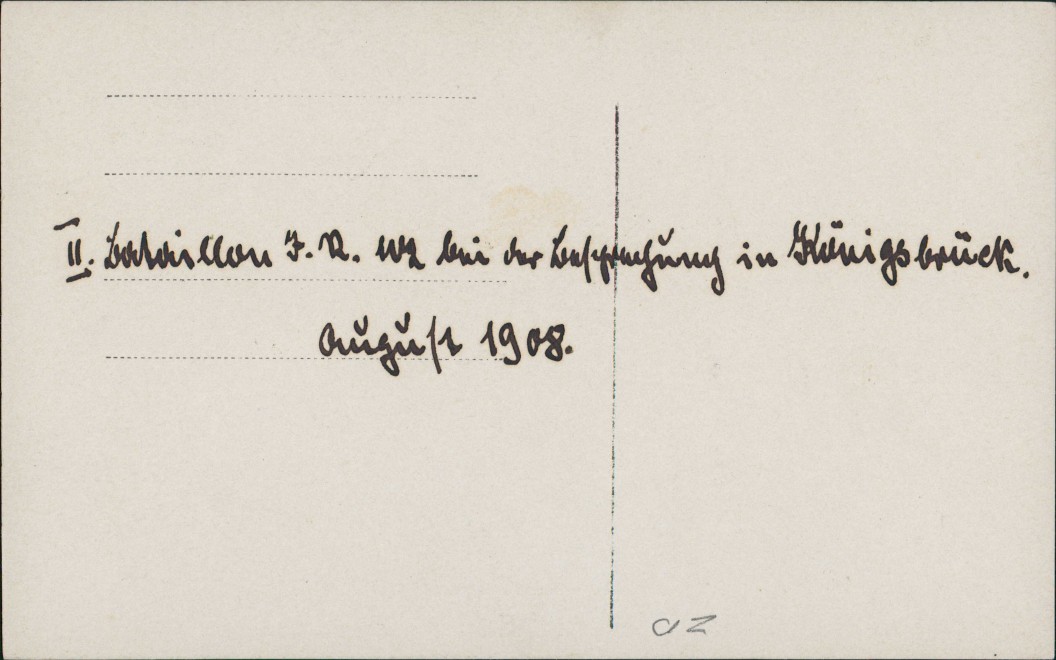 II. Bataillon I. R. 102 bei der Besprechung in Königsbrück.
August 1908.